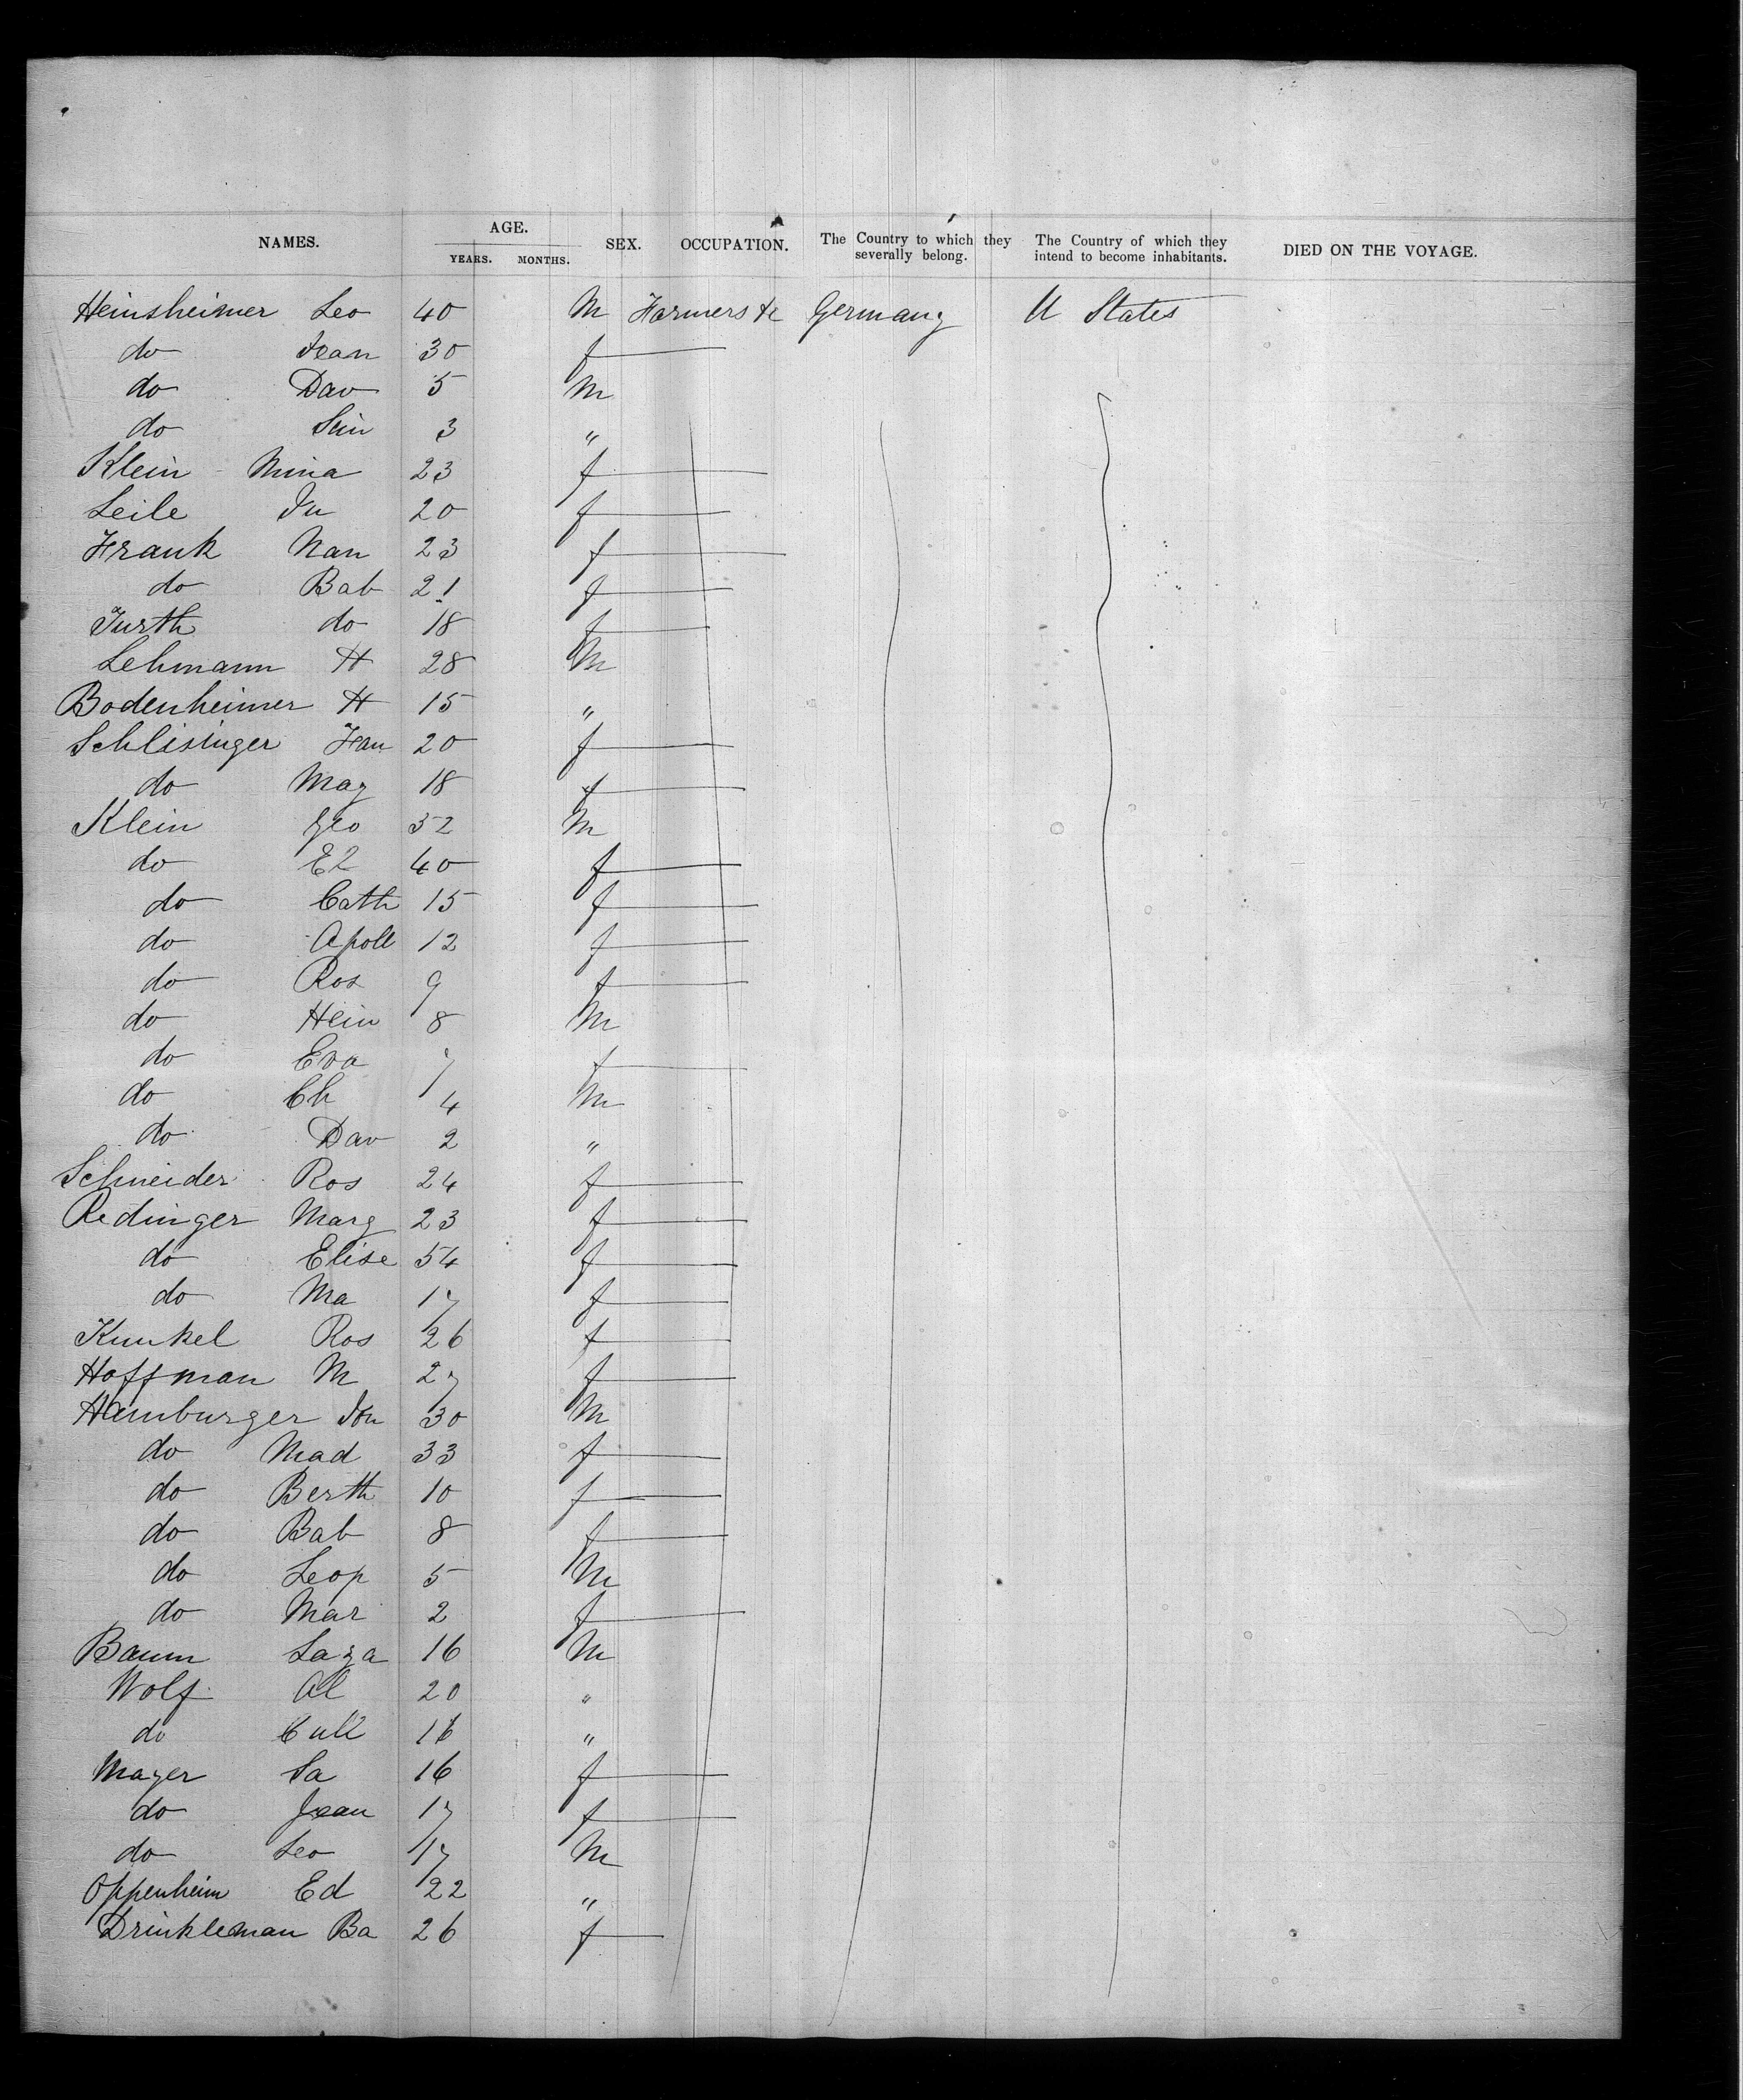 NAMES. AGE. YEARS. MONTHS. SEX. OCCUPATION. The Country to which they severally belong. The Country of which they intend to become inhabitants. DIED ON THE VOYAGE.
Heinsheimer Leo 40 M Farmers &c Germany U States
do Jean 30 f
do Dav 5 M
do Sim 3 "
Klein Mina 23 f
Leile Ju 20 f
Frank Nan 23 f
do Bab 21 f
Furth do 18 f
Lehmann H 28 M
Bodenheimer H 15 "
Schlisinger Han 20 f
do May 18 f
Klein Geo 52 M
do El 40 f
do Cath 15 f
do Apoll 12 f
do Ros 9 f
do Hein 8 M
do Eva 7 f
do Ch 4 M
do Dav 2 "
Schneider Ros 24 f
Redinger Marg 23 f
do Elise 54 f
do Ma 17 f
Kunkel Ros 26 f
Hoffman M 27 f
Hamburger 30 M
do Mad 33 f
do Berth 10 f
do Bab 8 f
do Leop 5 M
do Mar 2 f
Baum Laza 16 M
Wolf Al 20 "
do 16 "
Mayer Sa 16 f
do Jean 17 f
do Leo 17 M
Oppenheim Ed 22 "
Drinkleman Ba 26 f